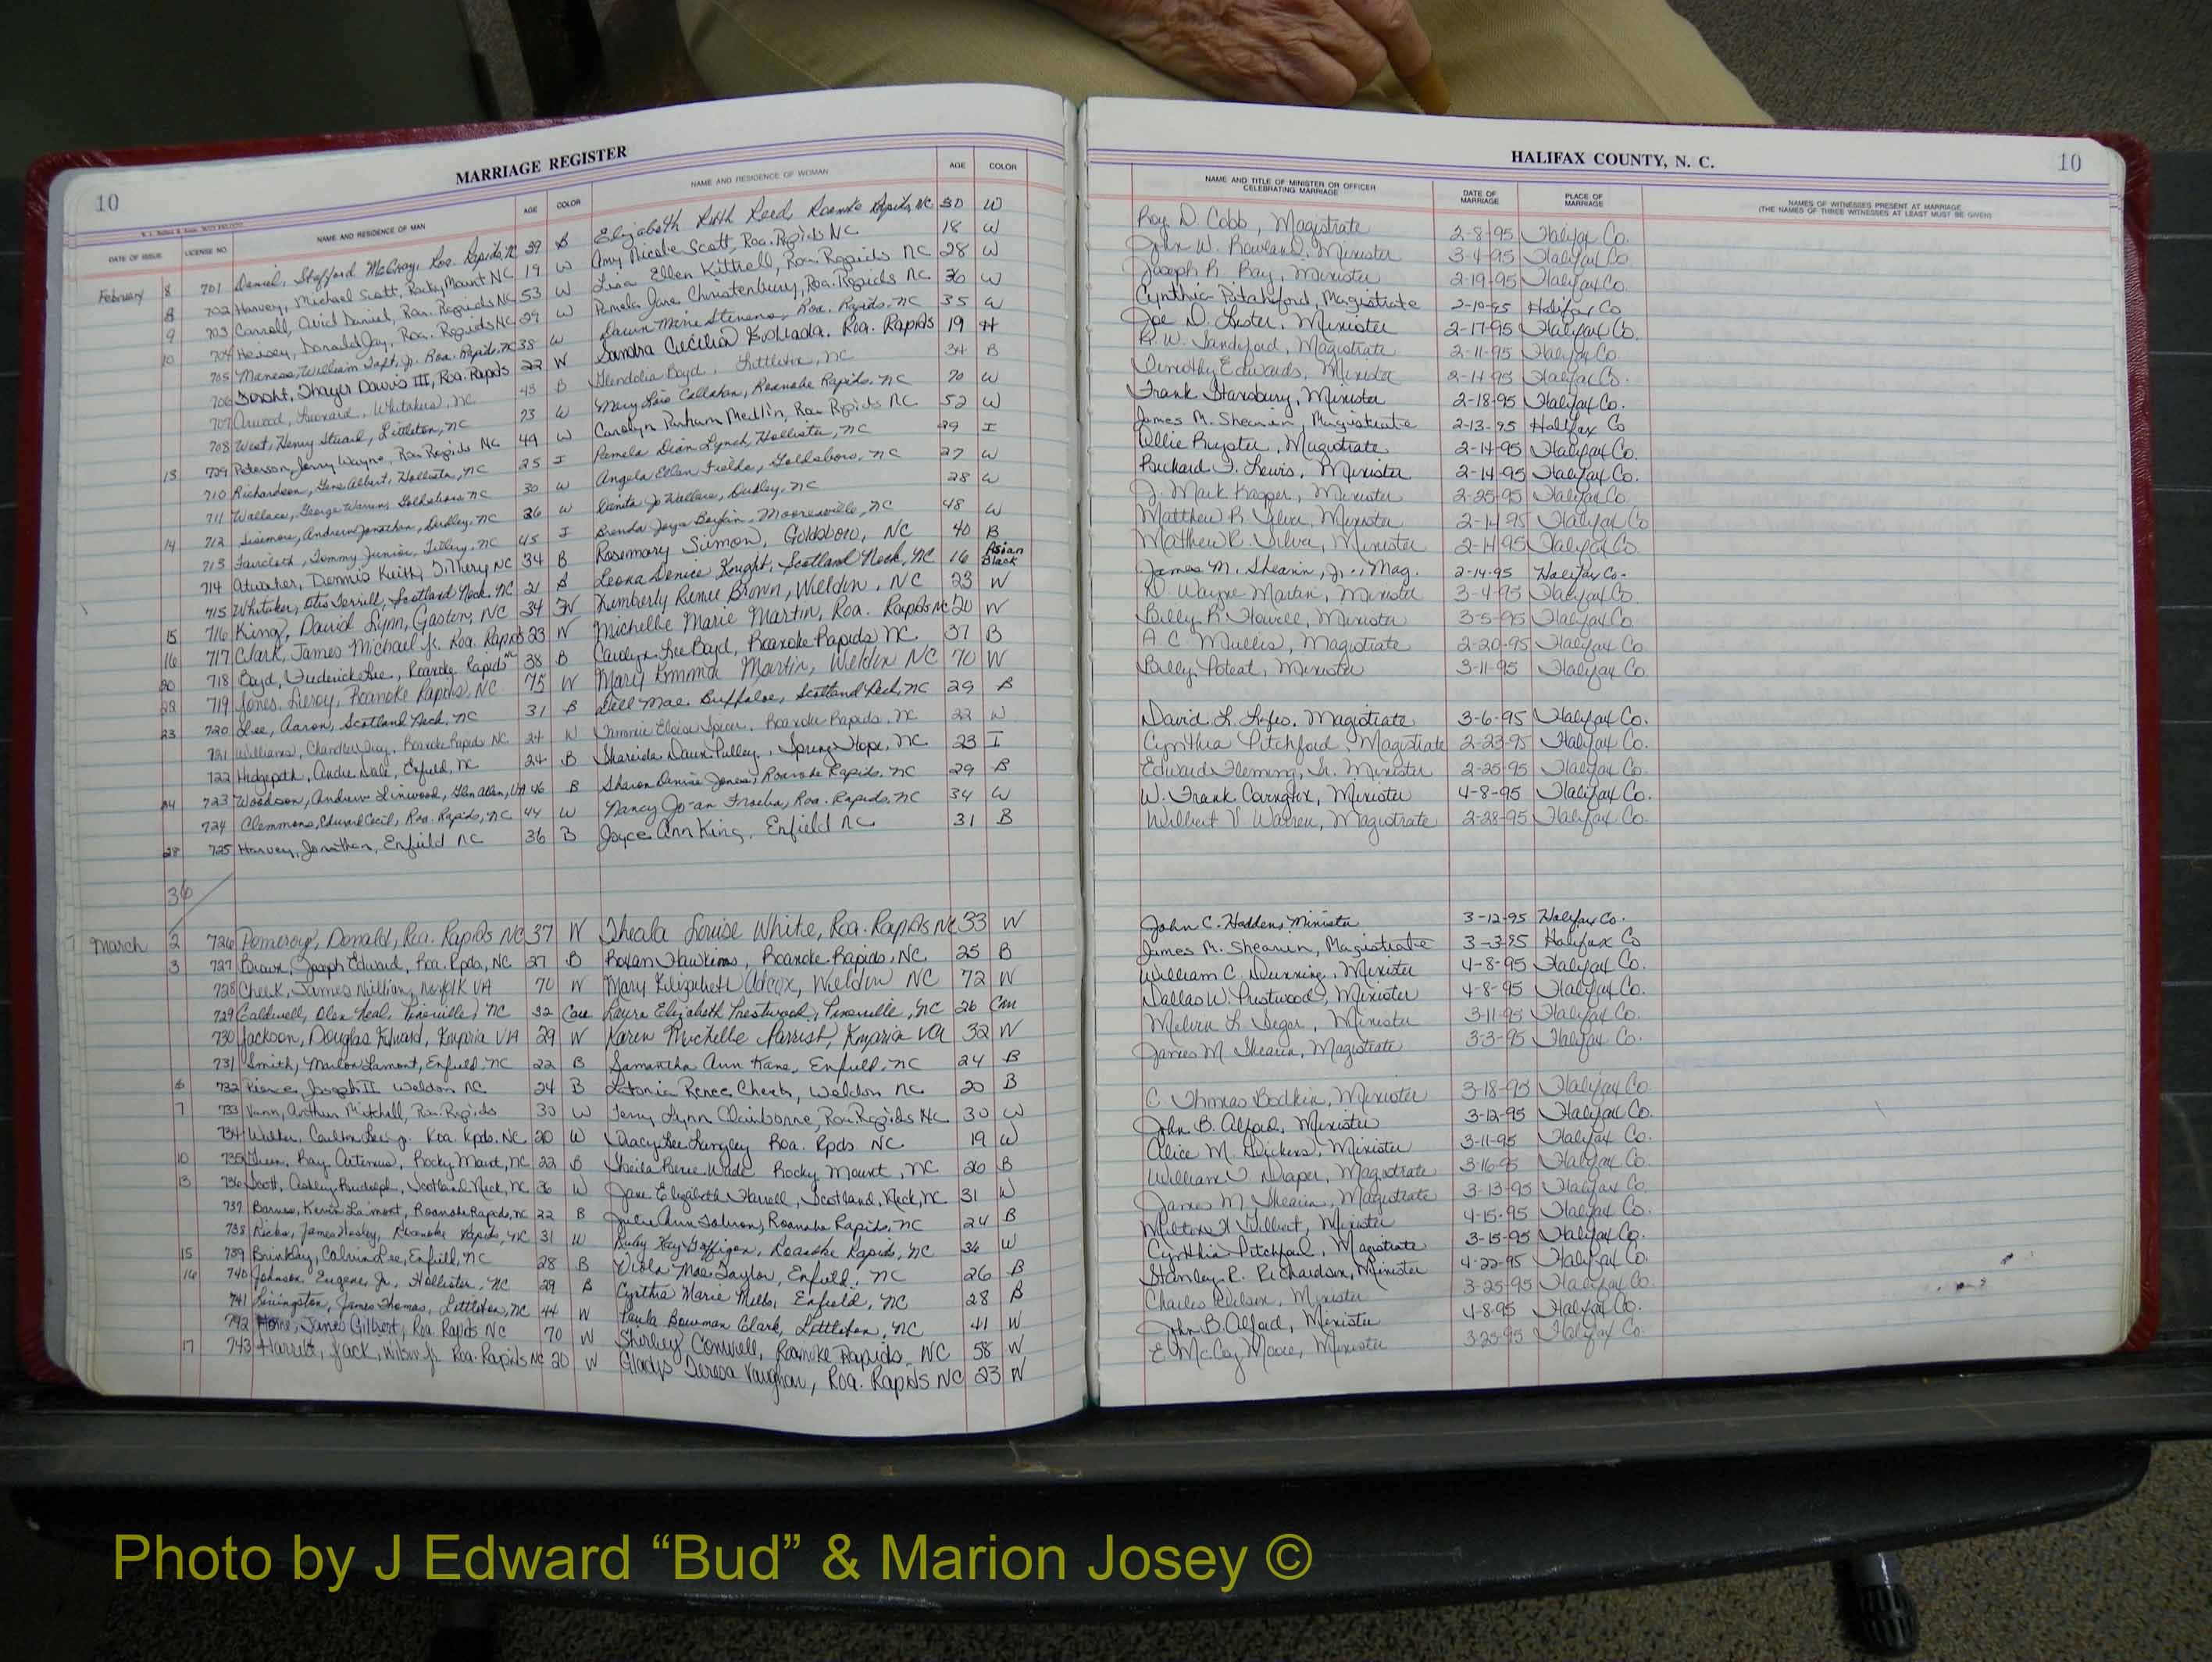 10
MARRIAGE REGISTER
DATE OF ISSUE LICENSE NO. NAME AND RESIDENCE OF MAN AGE COLOR NAME AND RESIDENCE OF WOMAN AGE COLOR
February 8 701 Daniel, Stafford McCray, Roa. Rapids, NC 39 B Elizabeth Ruth Reed Roanoke Rapids, NC 30 W
8 702 Harvey, Michael Scott, Rocky Mount NC 19 W Amy Nicole Scott, Roa. Rapids NC 18 W
9 703 Carroll, Daniel, Roa. Rapids NC 53 W Lisa Ellen Kittrell, Roa. Rapids NC 28 W
10 704 Heisey, Donald Jay, Roa. Rapids NC 29 W Pamela Jane Christenbury, Roa. Rapids NC 36 W
705 Maness, William Taft, Jr. Roa. Rapids, NC 38 W Dawn Marie Stevens, Roa. Rapids, NC 35 W
706 Thayer Davis III, Roa. Rapids 22 W Sandra Cecilia Roa. Rapids 19 H
707 Leonard, Whitakers, NC 43 B Glendolia Boyd, Littleton, NC 34 B
708 West, Henry Stuart, Littleton, NC 73 W Mary Lois Callahan, Roanoke Rapids, NC 70 W
13 709 Peterson, Jerry Wayne, Roa. Rapids NC 49 W Carolyn Parham Medlin, Roa. Rapids NC 52 W
710 Richardson, Gene Albert, Hollister, NC 25 I Pamela Dian Lynch, Hollister, NC 29 I
711 Wallace, George Warren, Goldsboro NC 30 W Angela Ellen Fields, Goldsboro, NC 27 W
14 712 Sizemore, Andrew Jonathan, Dudley, NC 26 W Jo Wallace, Dudley, NC 28 W
713 Faircloth, Tommy Junior, Tillery, NC 45 I Brenda Joyce Boykin, Mooresville, NC 48 W
714 Atwater, Dennis Keith, Tillery NC 34 B Rosemary Simon, Goldsboro, NC 40 B
715 Whitaker, Otis Terrill, Scotland Neck, NC 21 B Leona Denice Knight, Scotland Neck, NC 16 Asian Black
15 716 King, David Lynn, Gaston, NC 34 W Kimberly Renee Brown, Weldon, NC 23 W
16 717 Clark, James Michael Jr. Roa. Rapids 23 W Michelle Marie Martin, Roa. Rapids NC 20 W
20 718 Boyd, Frederick Lee, Roanoke Rapids NC 38 B Carolyn Lee Boyd, Roanoke Rapids NC 37 B
719 Jones, Leroy, Roanoke Rapids, NC 75 W Mary Emma Martin, Weldon NC 70 W
23 720 Lee, Aaron, Scotland Neck, NC 31 B Dell Mae Buffaloe, Scotland Neck, NC 29 B
721 Williams, Chandler Roanoke Rapids NC 24 W Tammie Eloise Spicer, Roanoke Rapids, NC 22 W
722 Hedgepeth, Andre Dale, Enfield, NC 24 B Dawn Pulley, Spring Hope, NC 23 I
24 723 Woodson, Andrew Linwood, Glen Allen, VA 46 B Sharon Denise Jones, Roanoke Rapids, NC 29 B
724 Clemmons, Edward Cecil, Roa. Rapids, NC 44 W Nancy Jo-an Roa. Rapids, NC 34 W
28 725 Harvey, Jonathan, Enfield NC 36 B Joyce Ann King, Enfield NC 31 B
36
March 2 726 Pomeroy, Donald, Roa. Rapids NC 37 W Theala Louise White, Roa. Rapids NC 33 W
3 727 Brown, Joseph Edward, Roa. Rpds, NC 27 B Roxan Hawkins, Roanoke Rapids, NC 25 B
728 Cheek, James William, Norfolk VA 70 W Mary Elizabeth Adcox, Weldon NC 72 W
729 Caldwell, Alex Neal, Pineville, NC 32 Cau Layra Elizabeth Prestwood, Pineville, NC 26 Cau
730 Jackson, Douglas Edward, Emporia VA 29 W Karen Michelle Parrish, Emporia VA 32 W
731 Smith, Marlon Lamont, Enfield, NC 22 B Samantha Ann Kane, Enfield, NC 24 B
6 732 Pierce, Joseph II Weldon NC 24 B Latonia Renee Cheek, Weldon NC 20 B
7 733 Vann, Arthur Mitchell, Roa. Rapids 30 W Terry Lynn Claiborne, Roa. Rapids NC 30 W
734 Carlton Lee Jr. Roa. Rpds. NC 20 W Tracy Lee Langley Roa. Rpds NC 19 W
10 735 Ray Artemus, Rocky Mount, NC 22 B Sheila Renee Wade Rocky Mount, NC 20 B
13 736 Scott, Ashley Rudolph, Scotland Neck, NC 36 W Jane Elizabeth Harrell, Scotland Neck, NC 31 W
737 Barnes, Kevin Lamont, Roanoke Rapids, NC 22 B Julie Ann Roanoke Rapids, NC 24 B
738 Ricks, James Wesley, Roanoke Rapids, NC 31 W Ruby Kay Roanoke Rapids, NC 36 W
15 739 Brinkley, Calvin Lee, Enfield, NC 28 B Viola Mae Taylor, Enfield, NC 26 B
16 740 Johnson Eugene, Jr., Hollister, NC 29 B Cynthia Marie Mills, Enfield, NC 28 B
741 Livingston, James Thomas, Littleton, NC 44 W Paula Bowman Clark, Littleton, NC 41 W
742 James Gilbert, Roa. Rapids NC 70 W Shirley Conwell, Roanoke Rapids, NC 58 W
17 743 Jack, Wilson Jr. Roa. Rapids NC 20 W Gladys Teresa Vaughan, Roa. Rapids NC 23 W
HALIFAX COUNTY, N. C.
10
NAME AND TITLE OF MINISTER OR OFFICER CELEBRATING MARRIAGE DATE OF MARRIAGE PLACE OF MARRIAGE NAMES OF WITNESSES PRESENT AT MARRIAGE (THE NAMES OF THREE WITNESSES AT LEAST MUST BE GIVEN)
Roy D Cobb, Magistrate 2-8-95 Halifax Co.
John W. Rowland, Minister 3-4-95 Halifax Co
Joseph R. Ray, Minister 2-19-95 Halifax Co.
Cynthia Pitchford, Magistrate 2-10-95 Halifax Co
Joe D. Lester, Minister 2-17-95 Halifax Co.
R. W. Sandford, Magistrate 2-11-95 Halifax Co.
Timothy Edwards, Minister 2-14-95 Halifax Co.
Frank Stansbury, Minister 2-18-95 Halifax Co.
James M. Shearin, Magistrate 2-13-95 Halifax Co
Ollie Magistrate 2-14-95 Halifax Co.
Richard F. Lewis, Minister 2-14-95 Halifax Co.
J. Mark Kasper, Minister 2-25-95 Halifax Co
Matthew R. Silver, Minister 2-14-95 Halifax Co
Mathew R. Silver, Minister 2-14-95 Halifax Co.
James M. Shearin, Jr., Mag. 2-14-95 Halifax Co.
D. Wayne Martin, Minister 3-4-95 Halifax Co.
Billy R. Howell, Minister 3-5-95 Halifax Co
A C Mullis, Magistrate 2-20-95 Halifax Co
Billy Poteat, Minister 3-11-95 Halifax Co
David L. Magistrate 3-6-95 Halifax Co.
Cynthia Pitchford, Magistrate 2-23-95 Halifax Co.
Edward Fleming, Sr. Minister 2-25-95 Halifax Co.
W. Frank Covington, Minister 4-8-95 Halifax Co.
Wilbert V Warren, Magistrate 2-28-95 Halifax Co.
John C. Hadden, Minister 3-12-95 Halifax Co.
James M. Shearin, Magistrate 3-3-95 Halifax Co
William C. Dunning, Minister 4-8-95 Halifax Co.
Dallas W. Prestwood, Minister 4-8-95 Halifax Co.
Melvin L. Segar, Minister 3-11-95 Halifax Co.
James M Shearin, Magistrate 3-3-95 Halifax Co.
C Thomas Bodkin, Minister 3-18-95 Halifax Co
John B. Alford, Minister 3-12-95 Halifax Co.
Alice M. Dickens, Minister 3-11-95 Halifax Co.
William J Draper, Magistrate 3-16-95 Halifax Co.
James M Shearin, Magistrate 3-13-95 Halifax Co.
Milton H. Gilbert, Minister 4-15-95 Halifax Co.
Cynthia Pitchford, Magistrate 3-15-95 Halifax Co.
Stanley R. Richardson, Minister 4-22-95 Halifax Co.
Charles Wilson, Minister 3-25-95 Halifax Co.
John B. Alford, Minister 4-8-95 Halifax Co.
E McCoy Moore, Minister 3-25-95 Halifax Co.
Photo by J Edward “Bud” & Marion Josey ©